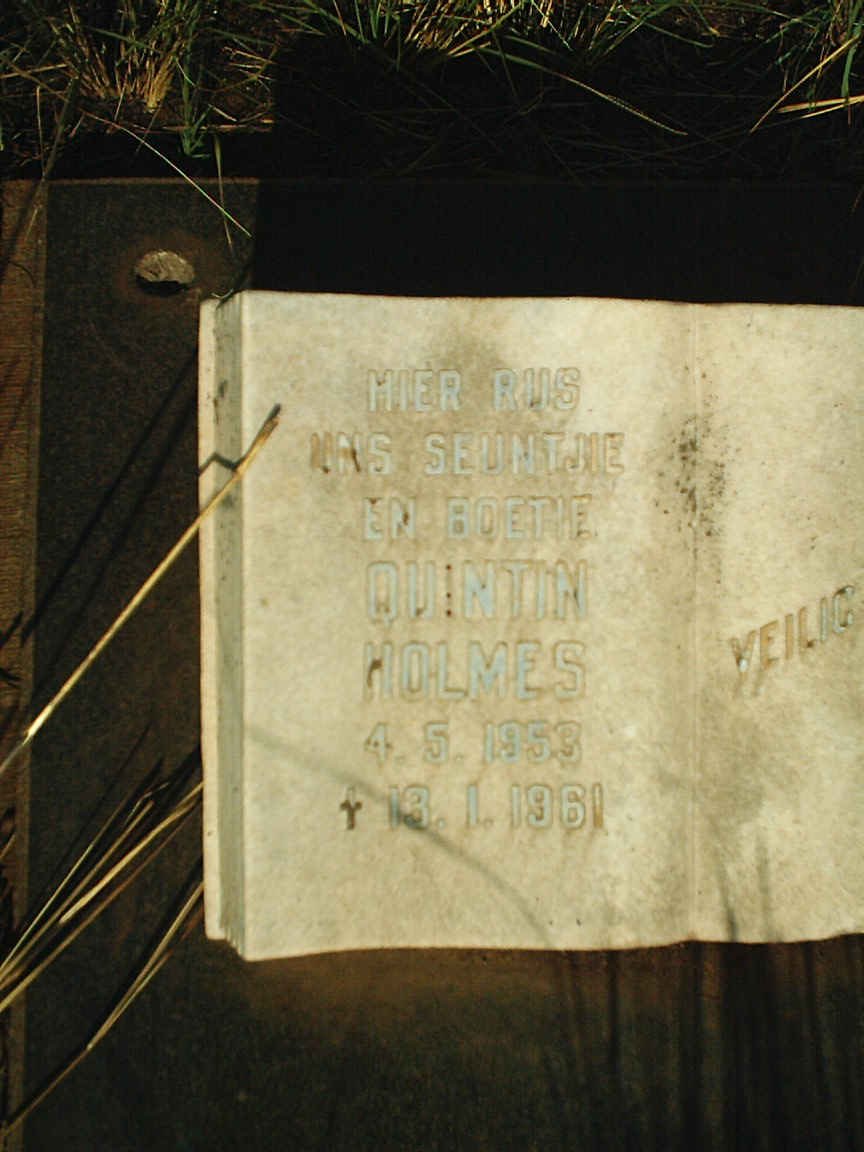 HIER RUS
ONS SEUNTJIE
EN BOETIE
QUINTIN
HOLMES
4. 5. 1953
† 13. 1. 1961
VEILIG